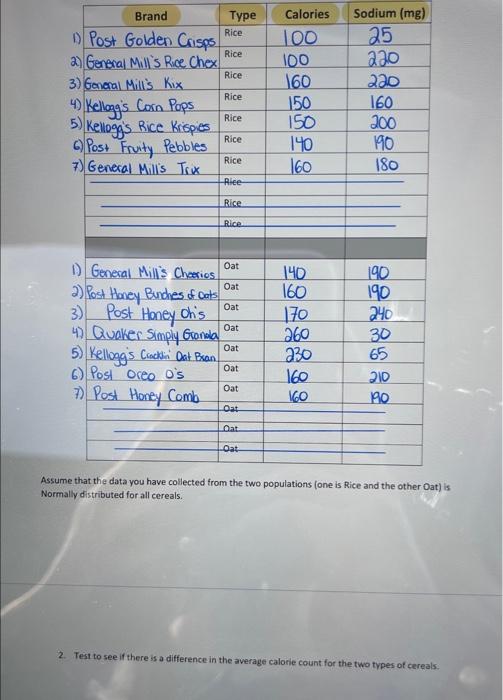 Brand Type Calories Sodium (mg)
1) Post Golden Crisps Rice 100 25
2) General Mill's Rice Chex Rice 100 220
3) General Mill's Kix Rice 160 220
4) Kellogg's Corn Pops Rice 150 160
5) Kellogg's Rice Krispies Rice 150 200
6) Post Fruity Pebbles Rice 140 190
7) General Mill's Trix Rice 160 180
Rice
Rice
Rice
1) General Mill's Cheerios Oat 140 190
2) Post Honey Bunches of Oats Oat 160 190
3) Post Honey Oh's Oat 170 240
4) Quaker Simply Granola Oat 260 30
5) Kellogg's Cracklin' Oat Bran Oat 230 65
6) Post Oreo O's Oat 160 210
7) Post Honey Comb Oat 160 190
Oat
Oat
Oat
Assume that the data you have collected from the two populations (one is Rice and the other Oat) is
Normally distributed for all cereals.
2. Test to see if there is a difference in the average calorie count for the two types of cereals.